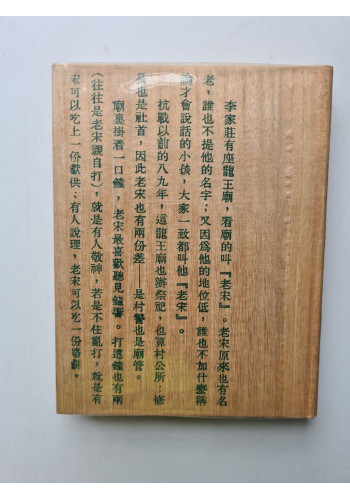 李家莊有座龍王廟,看廟的叫『老宋』。老宋原來也有名
老,誰也不提他的名字;又因爲他的地位低,誰也不加什麼稱
論才會說話的小孩,大家一致都叫他『老宋』。
抗戰以前的八九年,這龍王廟也辦祭祀,也算村公所;修
長也是社首,因此老宋也有兩份差——是村警也是廟管。
廟裏掛着一口鐘,老宋最喜歡聽見鐘響。打這鐘也有兩
(往往是老宋親自打),就是有人敬神,若是不住亂打,就是有
宋可以吃上一份獻供;有人說理,老宋可以吃一份烙餅。